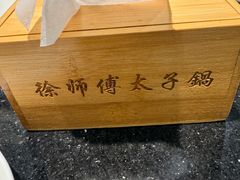 徐师傅太子鍋